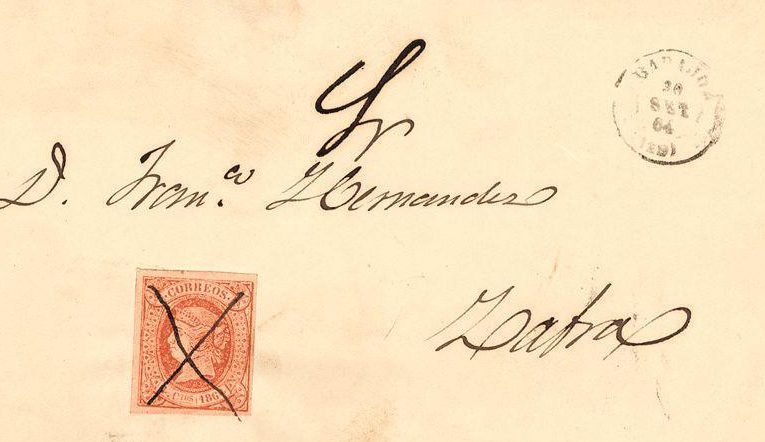 Sr
D. Franco. Hernandez
Zafra
BADAJOZ
30
SET
64
(29)
CORREOS
4 CDOS 1864